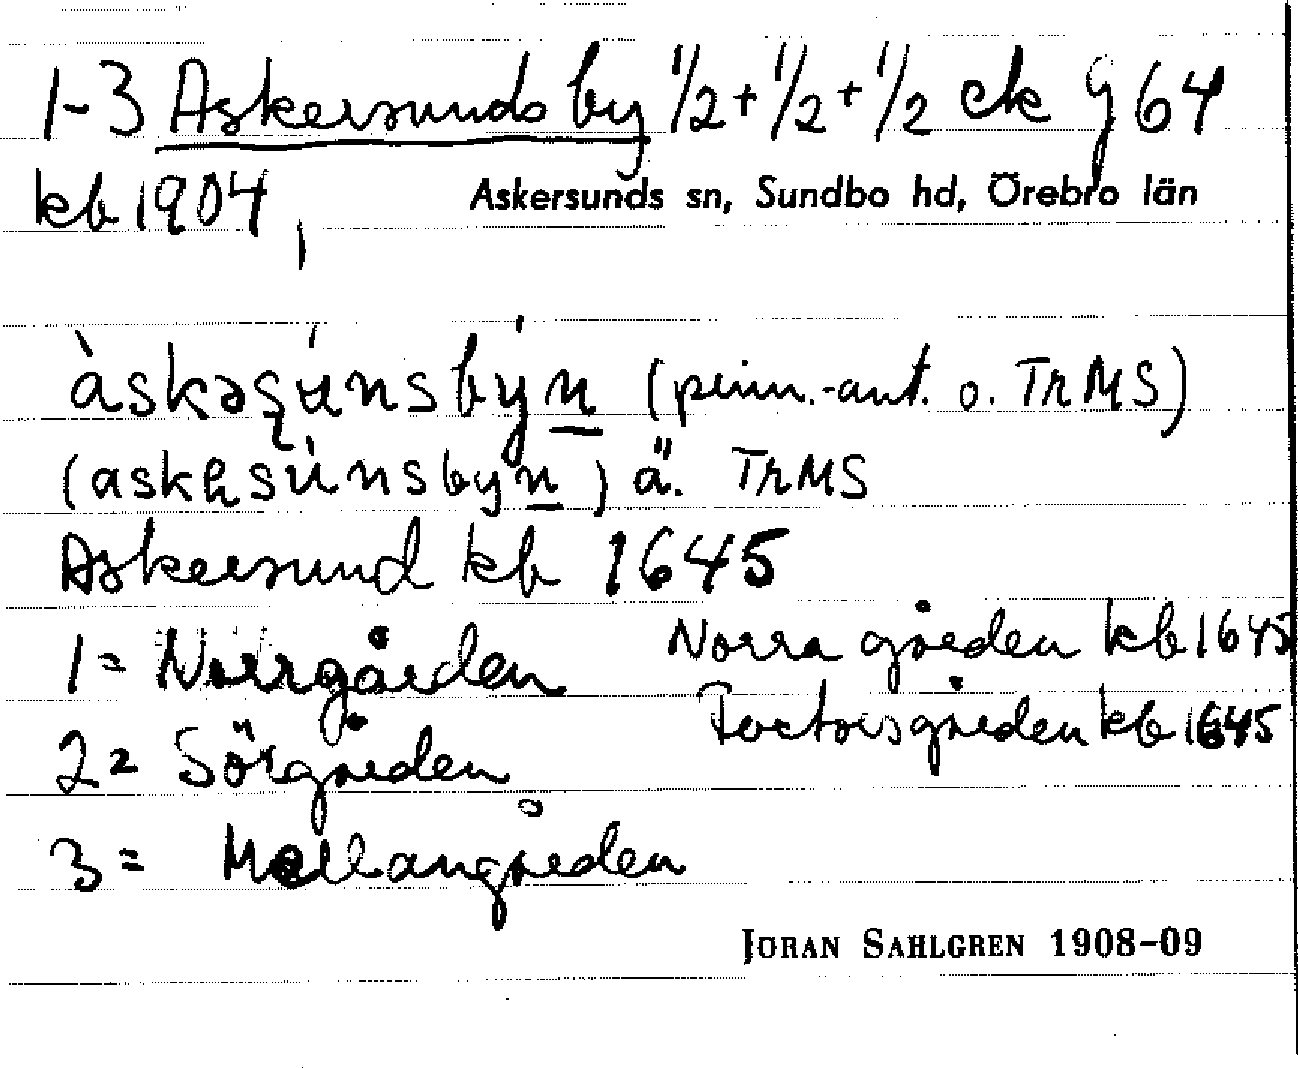 1-3 Askersunds by 1/2+1/2+1/2 ck G 64
kb 1904,
Askersunds sn, Sundbo hd, Örebro län
àskəʂúnsbýn (pinn.-ant. o. TrMS)
(askɛsúnsbyn) ä. TrMS
Askersund kb 1645
1= Norrgården Norra gården kb 1645
2= Sörgården gården kb 1645
3= Mellangården
JÖRAN SAHLGREN 1908-09